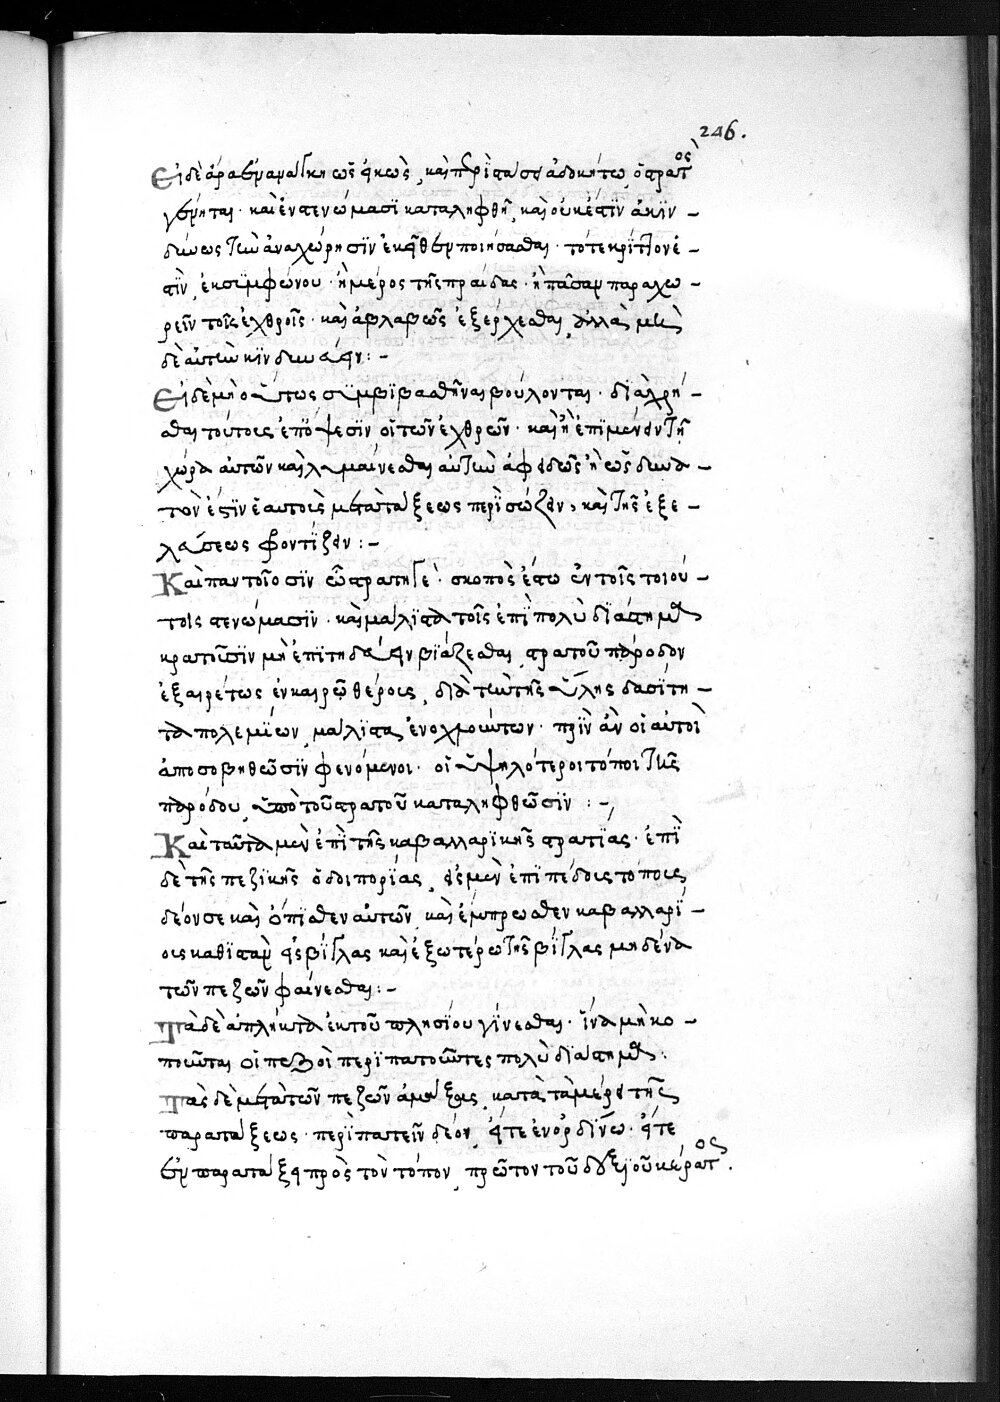 246.
Εἰ δὲ ἄρα ἐν ἀνάγκῃ ὡς εἰκὸς, καὶ περιστάσει ἀδοκήτω, ὁ στρατὸς
γένηται· καὶ ἐν στενώμασϊ καταληφθῆ, καὶ οὐκ ἔστϊν ἀκϊν-
δύνως τὴν ἀναχώρησϊν ἐκεῖθεν ποιήσασθαι· τότε κρίττον έ-
στϊν, ἐκ συμφώνου· ἢ μέρος τῆς πραίδας· ἢ πᾶσαν παραχω-
ρεῖν τοῖς ἐχθροῖς· καὶ ἀβλαβῶς ἐξέρχεσθαι, ἀλλὰ μὴ
δὲ αὐτὴν κϊνδυνεύειν:-
Εἰ δὲ μὴ οὕτως συμβϊβασθῆναι βούλονται· δϊαχρή-
σθαι τούτοις ἐπόψεσϊν, οἱ τῶν ἐχθρῶν· καὶ ἢ ἐπϊμένειν τῇ
χώρα αὐτῶν καὶ λυμαίνεσθαι αὐτὴν ἀφειδῶς ἢ ὡς δυνα-
τὸν ἐστϊν ἑαυτοὺς μετὰ τάξεως περϊσώζειν, καὶ τῆς ἐξε-
λάσεως φροντίζειν:-
Καὶ παντοῖος ϊν ὦ στρατηγὲ· σκοπὸς ἔστω ἐν τοῖς τοιού-
τοις στενώμασϊν· καὶ μάλϊστα τοῖς ἐπϊ πολὺ δϊάστημα
κρατοῦσϊν μὴ ἐπϊτηδεύειν βϊάζεσθαι, στρατοῦ πάροδον
ἐξαιρέτως ἐν καιρῷ θέρους, δϊὰ τὴν τῆς ὕλης δασύτη-
τα πολεμίων, μάλϊστα ἐνοχλούντων· πρϊν ἂν οἱ αὐτοὶ
ἀποσοβηθῶσϊν φενόμενοι· οἱ ὑψηλότεροι τόποι τῆς
παρόδου, ὑπὸ τοῦ στρατοῦ καταληφθῶσϊν:-
Καὶ ταῦτα μὲν ἐπὶ τῆς καβαλλαρϊκῆς στρατϊᾶς· ἐπὶ
δὲ τῆς πεζϊκῆς ὁδοιπορίας, εἰ μὲν ἐπϊπέδοις τόποις
δέον σε καὶ ὄπϊσθεν αὐτῶν, καὶ ἔμπρωσθεν καβαλλαρί-
οις καθϊστᾶν εἰς βίγλας καὶ ἐξωτέρω τῆς βίγλας μηδένα
τῶν πεζῶν φαίνεσθαι:-
Τὰ δὲ ἄπληκτα ἐκ τοῦ πλησίου γίνεσθαι· ἵνα μὴ κο-
ποιῶνται οἱ πεζοὶ περϊπατοῦντες πολὺ δϊάστημα:
Τὰς δὲ μετὰ τῶν πεζῶν ἁμάξας, κατὰ τὰ μέρει τῆς
παρατάξεως· περϊπατεῖν δέον, εἴτε ἐν ὀρδίνω· εἴτε
ἐν παρατάξει πρὸς τὸν τόπον, πρῶτον τοῦ δεξϊοῦ κέρατος.